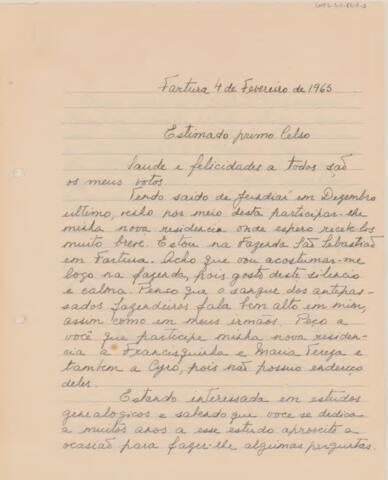 Fartura 4 de Fevereiro de 1965
Estimado primo Celso
Saude e felicidades a todos são
os meus votos.
Tendo saido de Jundiaí em Dezembro
ultimo, venho por meio desta participar-lhe
minha nova residencia onde espero recebe-los
muito breve. Estou na Fazenda São Sebastião
em Fartura. Acho que vou acostumar-me
logo na fazenda, pois gosto deste silencio
e calma. Penso que o sangue dos antepas-
sados fazendeiros fala bem alto em mim,
assim como em meus irmãos. Peço a
você que participe minha nova residen-
cia a Francisquinha e Maria Tereza e
tambem a Cyro, pois não possuo endereço
deles.
Estando interessada em estudos
genealogicos e sabendo que voce se dedica
a muitos anos a esse estudo aproveito a
ocasião para fazer-lhe algumas perguntas.